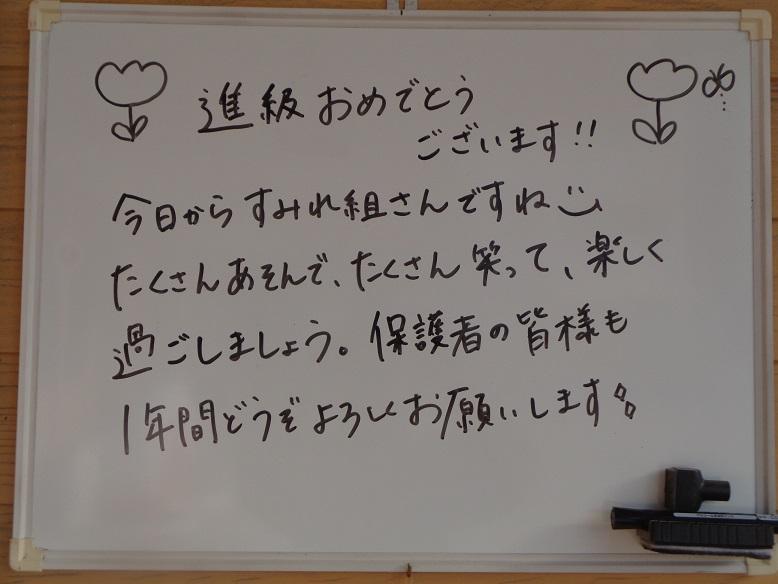 進級おめでとう
ございます!!
今日からすみれ組さんですね
たくさんあそんで、たくさん笑って、楽しく
過ごしましょう。保護者の皆様も
1年間どうぞよろしくお願いします